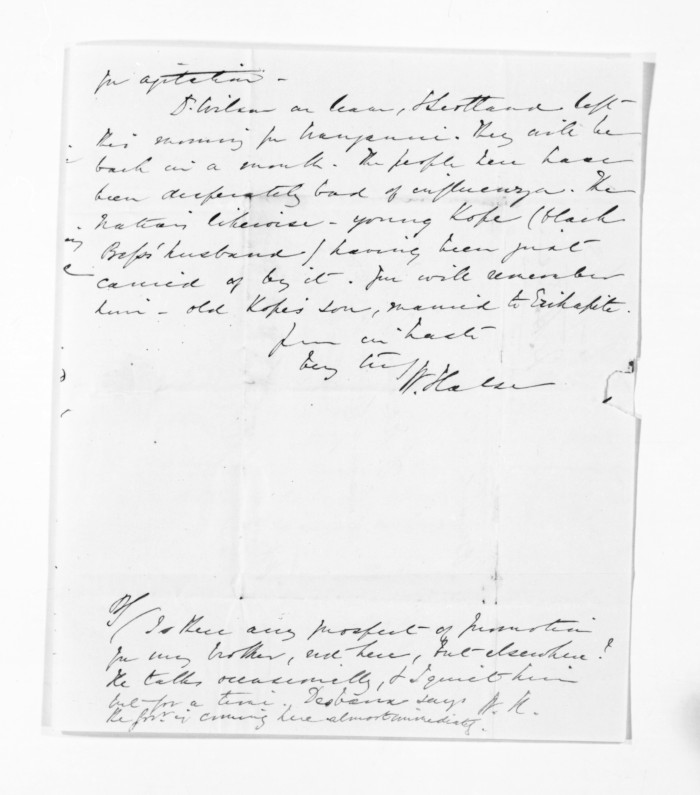 for agitation -
Dr Wilson on leave, & Scotland left
this morning for Wanganui. They will be
back in a month. The people here have
been desperately bad of influenza. The
Natives likewise - young Kope (black
Bess' husband) having been just
carried of by it. You will remember
him - old Kope's son, married to Erihapite.
Yours in haste
Very truly
W. Halse
P/ Is there any prospect of promotion
for my brother, not here, but elsewhere?
He talks occasionally, & I quiet him
but for a time. W. H.
says
the Govr. is coming here almost immediately.